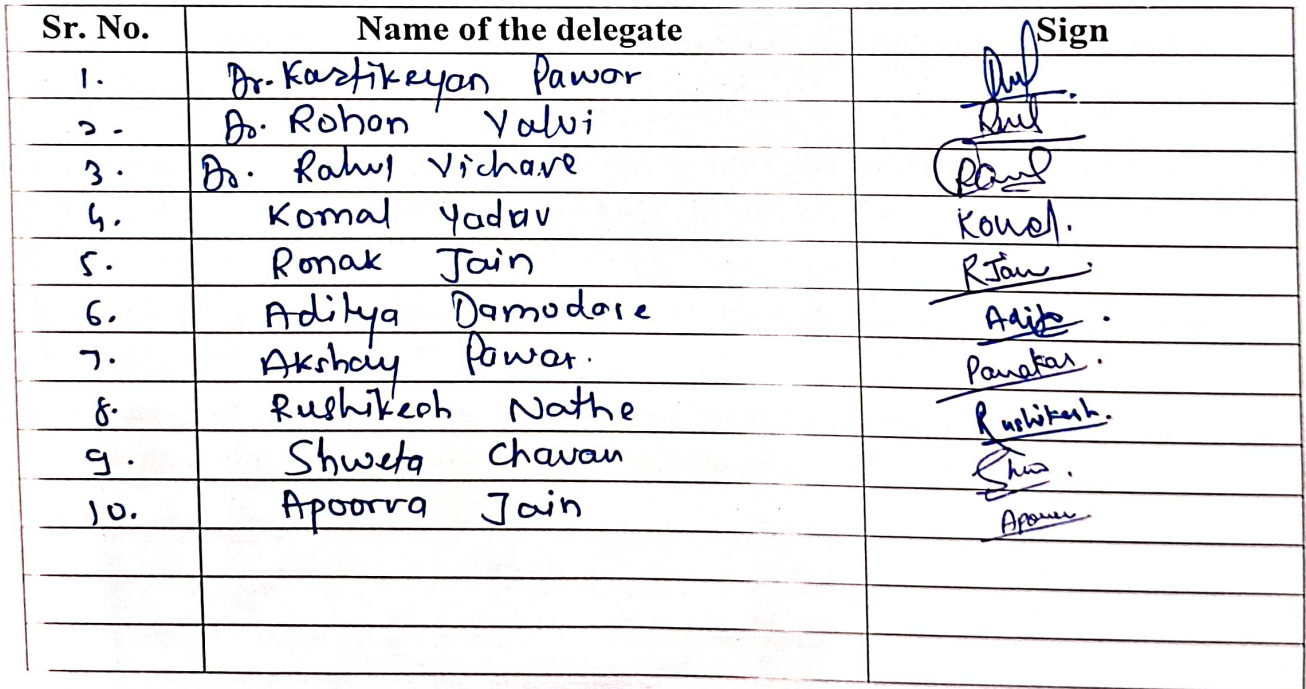 Sr. No. Name of the delegate Sign
1. Dr. Kartikeyan Pawar
2. Dr. Rohan Valvi
3. Dr. Rahul Vichare
4. Komal Yadav Komal.
5. Ronak Jain RJain
6. Aditya Damodare
7. Akshay Pawar.
8. Rushikesh Nathe Rushikesh.
9. Shweta Chavan
10. Apoorva Jain